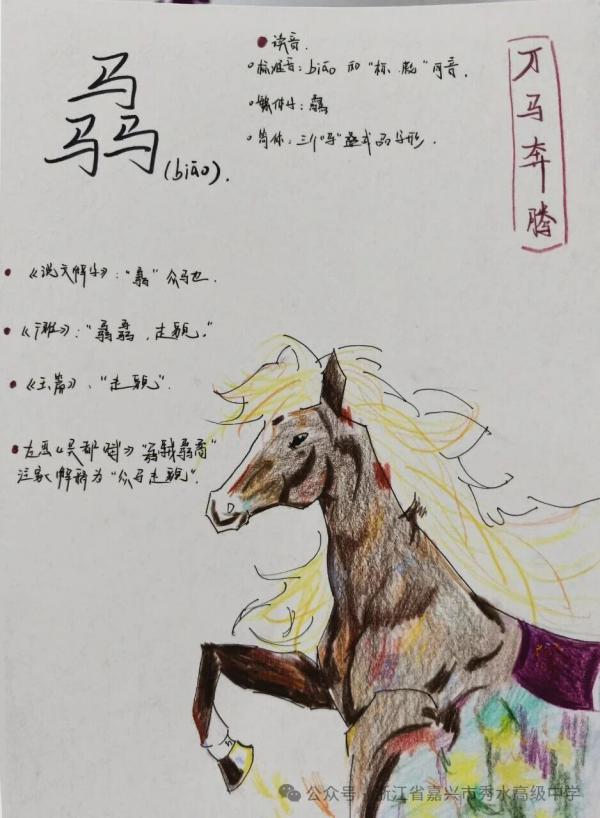 骉
(biāo).
读音.
标准音：biāo 和"标、彪"同音.
繁体字：驫
简体：三个"马"叠式品字形.
万马奔腾
《说文解字》："骉"众马也.
《广雅》："骉骉，走貌."
《玉篇》、"走貌".
左思《吴都赋》"骉矞"
注家解释为"众马走貌".
公众号 · 浙江省嘉兴市秀水高级中学